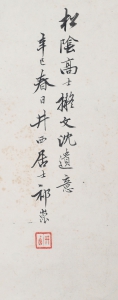 松陰高士擬文沈遺意
辛巳春日井西居士祁崑